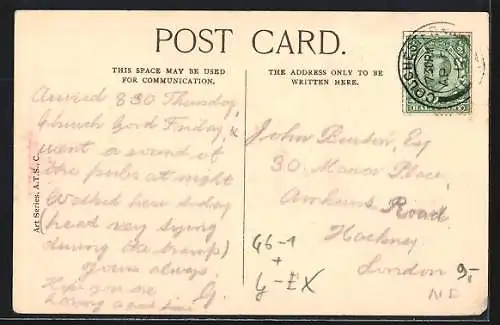 POST CARD.
THIS SPACE MAY BE USED
FOR COMMUNICATION.
THE ADDRESS ONLY TO BE
WRITTEN HERE.
Arrived 8 30 Thursday,
Church Good Friday, &
went a round of
the pubs at night
Walked here today
(head very
during the tramp)
Yours always
Hope you are G.
having a good time
Art Series, A.T.S., C.
John Esq
30 Manor Place,
Amhurst Road
Hackney
London
N E
G6-1
+
y-EX
9,-